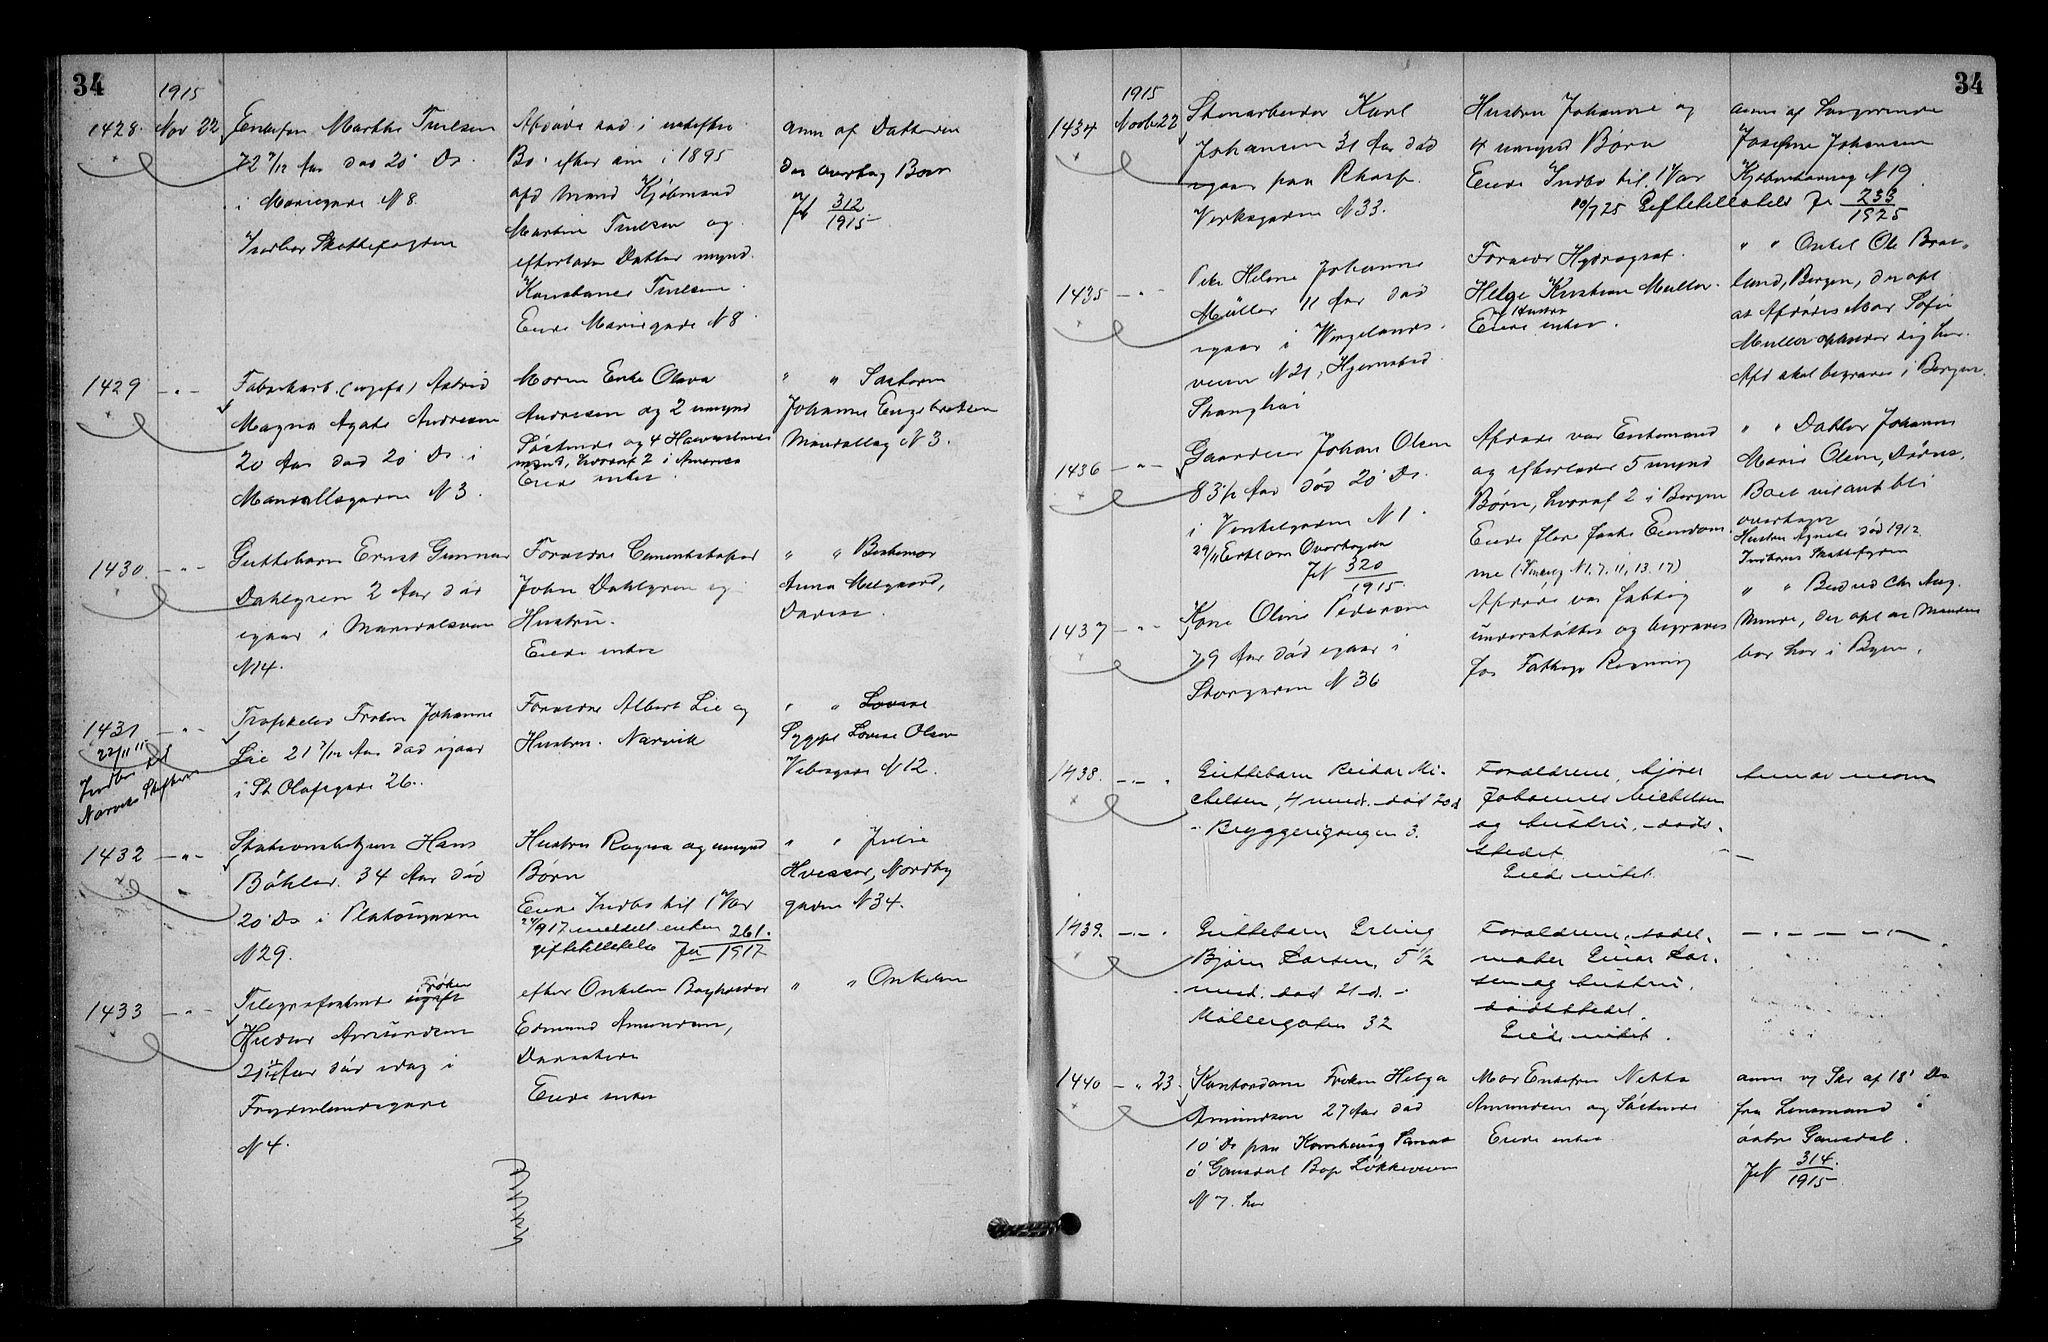 34
1915
1428. Nov 22 Enkefru Marthe Truelsen
72 7/12 Aar død 20' Ds.
i Mariegade N 8.
Indber Skattefogden
Afdøde sad i uskiftet
Bo efter sin i 1895
afd Mand Kjøbmand
Martin Truelsen og
efterlader Datter mynd.
Konstance Truelsen.
Eiede Mariegade N 8.
anm af Datteren
der overtog Boet
Jf 312/1915
1429 - " - Fabrikarb. (ugift) Astrid
Magna Agate Andresen
20 Aar død 20' Ds. i
Mandallsgaden N 3.
Moren Enke Olava
Andresen og 2 umynd
Søskende og 4 Halvsøskende
mynd, hvoraf 2 i Amerika
Eiede intet.
" "
Johanne Engebretsen
Mandallsg N 3.
1430. - " - Guttebarn Ernst Gunnar
Dahlgren 2 Aar død
igaar i Maridalsveien
N 14.
Forældre Cementstøper
John Dahlgren og
Hustru.
Eiede intet
" " Bestemor
Anna Melgaard,
1431 - " -
22/11 15
Indber til
Narviks Skifteret
Johanne
Lie 21 7/12 Aar død igaar
i St Olafsgade 26.
Forældre Albert Lie og
Hustru. Narvik
" " Lovise
Sygepl Lovise Olsen
Vibesgade N 12.
1432 - " - Stationsbetjen Hans
Bøhler. 34 Aar død
20' Ds i Platousgaden
N 29.
Hustru Ragna og umynd
Børn
Eiede Indbo til 1 Vær
/917 meddelt enken
giftetilladelse Jn 261./1917
" " Julie
Hvesser, Nordby
gaden N 34.
1433 - " - Telegrafistinde ugift Frøken
Amundsen
21 Aar død idag i
Frydenlundsgade
N 4.
efter Onkelen Bogholder
Edmund Amundsen,
Eiede intet
" " Onkelen
34
1915
1434 Novbr 22 Stenarbeider Karl
Johansen 31 Aar død
igaar paa Rhosf.
Verksgaden N 33.
Hustru Johanne og
4 umynd Børn
Eiede Indbo til 1 Vær
10/7 25 Giftetilladelse Jn 233/1925
anm af Svigerinde
Josefine Johansen
N 19.
1435 - " - Pike Helene Johanne
Müller 11 Aar død
igaar i Wergelands-
veien N 21, Hjemsted
Shanghai
Forældr Hydrograf
Helge Kristian Muller.
og Hustru
Eiede intet.
" " Onkel Ole Bræ-
land, Bergen, der opl
at Afdødes Mor Sofie
Muller opholder sig her.
Afd skal begraves i Bergen.
1436 - " - Gaardeier Johan Olsen
83 1/2 Aar død 20' Ds.
i Vinkelgaden N 1.
29/11 Erklære Overtagelse
JN 320/1915
Afdøde var Enkemand
og efterlader 5 mynd
Børn, hvoraf 2 i Bergen
Eiede flere faste Eiendom-
me (Vinkelg N 1, 7, 11, 13, 17)
" " Datter Johanne
Marie Olsen, Dødss.
Boet vil ant bli
overtaget
Hustru Agnete død 1912
Indberes Skattefogden
1437 - " - Kone Oline Pedersen
79 Aar død igaar i
Storgaden N 36
Afdøde var fattig
understøttet og begraves
for Fattigv Regning
" " Bedred Chr Aug.
Minde, der opl at Manden
bor her i Byen.
1438. - " - Guttebarn Reidar Mi-
chelsen, 4 mnd. død 20 d
- Bryggerigangen 3.
Forældrene, kjører
Johannes Michelsen
og hustru, - døds-
stedet.
Eiede intet.
Anm av moren
1439. - " - Guttebarn Erling
Bjørn Larsen, 5 1/2
mnd. død 21 d. -
Møllergaten 32
Forældrene, sadel-
maker Einar Lar-
sen og hustru,
dødsstedet.
Eiede intet.
- " - " -
1440 - " 23. Kontordame Frøken Helga
Amundsen 27 Aar død
10' Ds paa Kornhaug Sanat
i Gausdal Bop Løkkeveien
N 7. her
Mor Enkefru Netta
Amundsen og Søskende
Eiede intet
anm vg Skr af 18' Ds
fra Lensmand i
østre Gausdal.
JN 314./1915